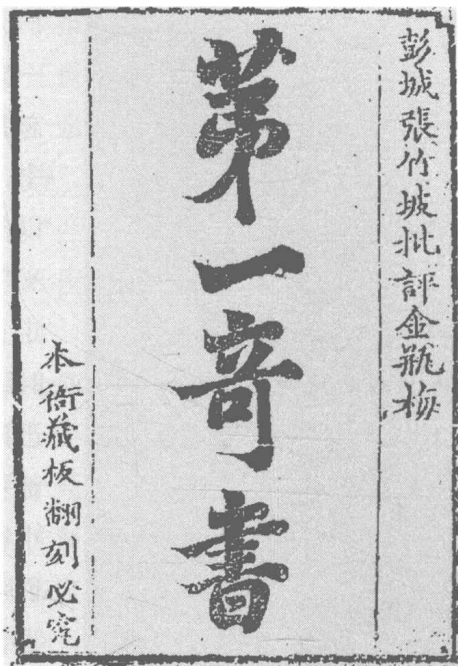 彭城張竹坡批評金瓶梅
第一奇書
本衙藏板翻刻必究